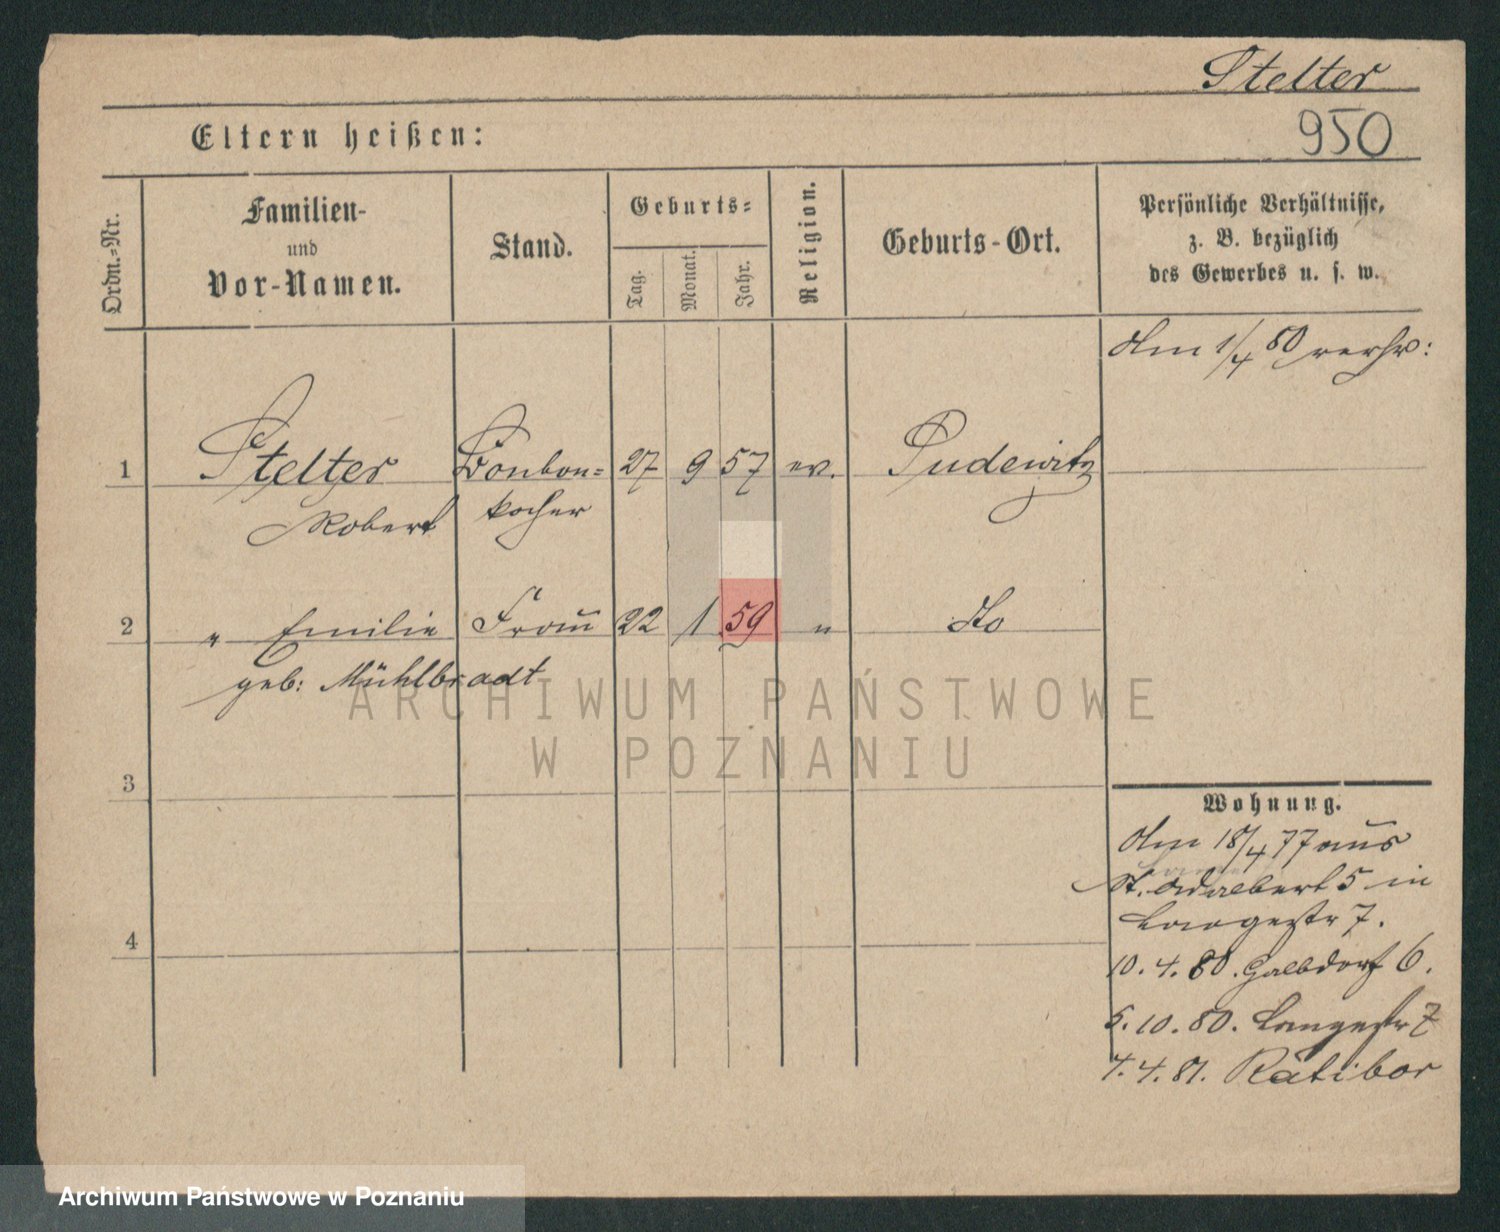 Stelter
950
Eltern heißen:
Ordn.-Nr.
Familien-
und
Vor-Namen.
Stand.
Geburts-
Tag.
Monat.
Jahr.
Religion.
Geburts-Ort.
Persönliche Verhältnisse,
z. B. bezüglich
des Gewerbes u. s. w.
Am 1/4 80 verhr:
1 Stelter Bonbon= 27 9 57 ev. Pudewitz
Robert kocher
2 " Emilie Frau 22 1 59 " do
geb: Mühlbradt
ARCHIWUM PAŃSTWOWE
W POZNANIU
3
Wohnung.
Am 18/4 77 aus
St. Adalbert 5 in
Langestr 7.
4
10. 4. 80. Halbdorf 6.
5. 10. 80. Langestr 7
4. 4. 81. Ratibor
Archiwum Państwowe w Poznaniu